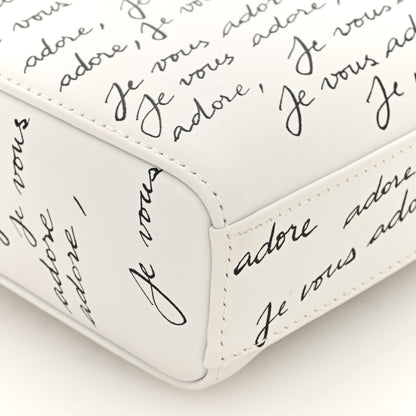 adore, Je
adore, adore, Je vous
Je vous adore
Je vous adore, Je vous
adore, Je vous adore
Je
Je vous
adore
adore,
Je vous
adore adore
Je vous adore